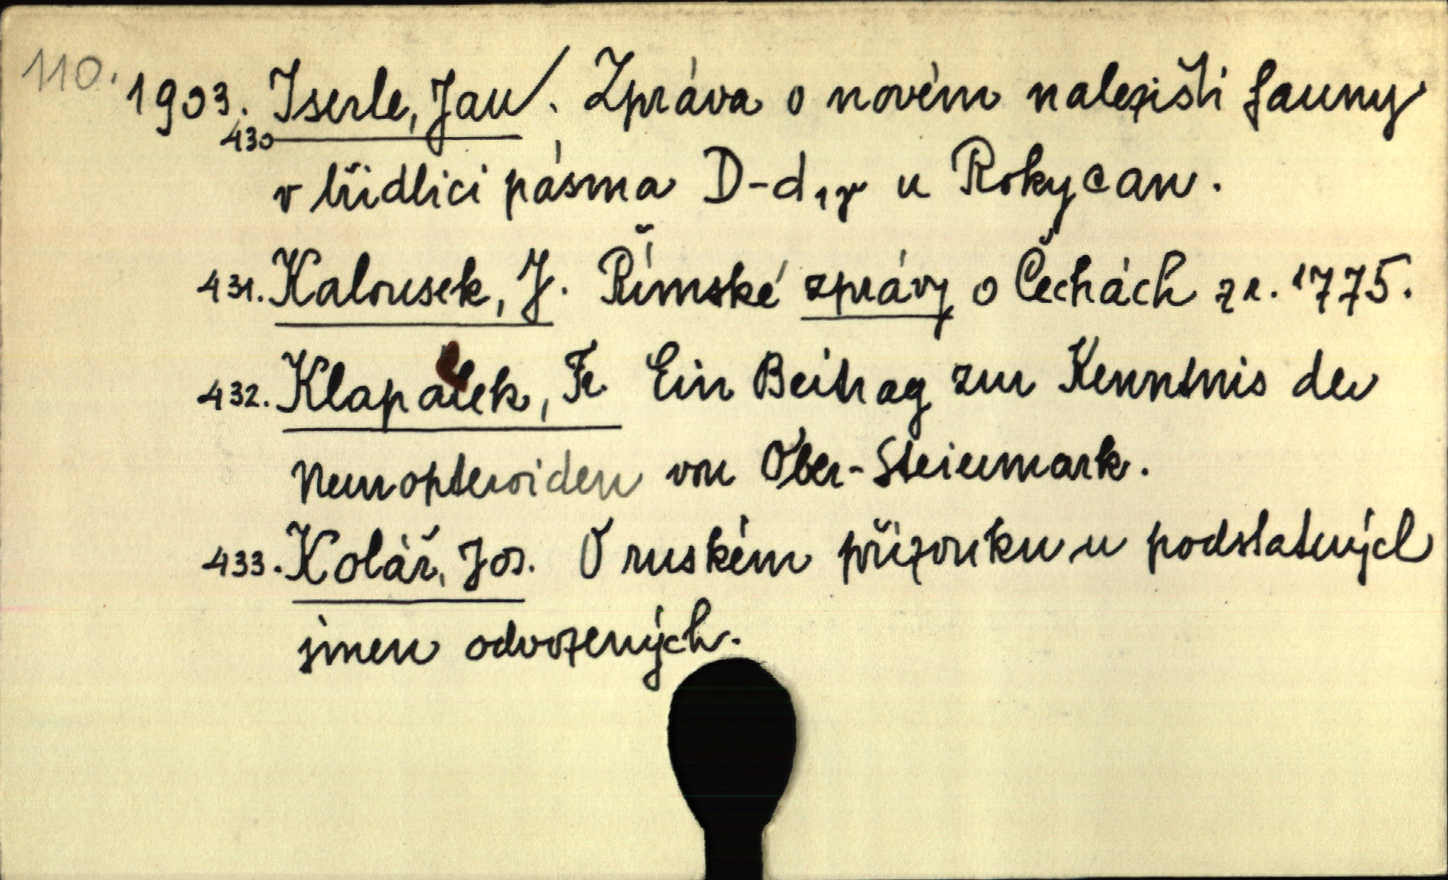 110.
1903. Iserle, Jan. Zpráva o novém nalezišti fauny
430
v břidlici pásma D-d₁γ u Rokycan.
431. Kalousek, J. Římské zprávy o Čechách z r. 1775.
432. Klapálek, Fr Ein Beitrag zur Kenntnis der
Neuropteroiden von Ober-Steiermark.
433. Kolář, Jos. O ruském přízvuku u podstatných
jmen odvozených.